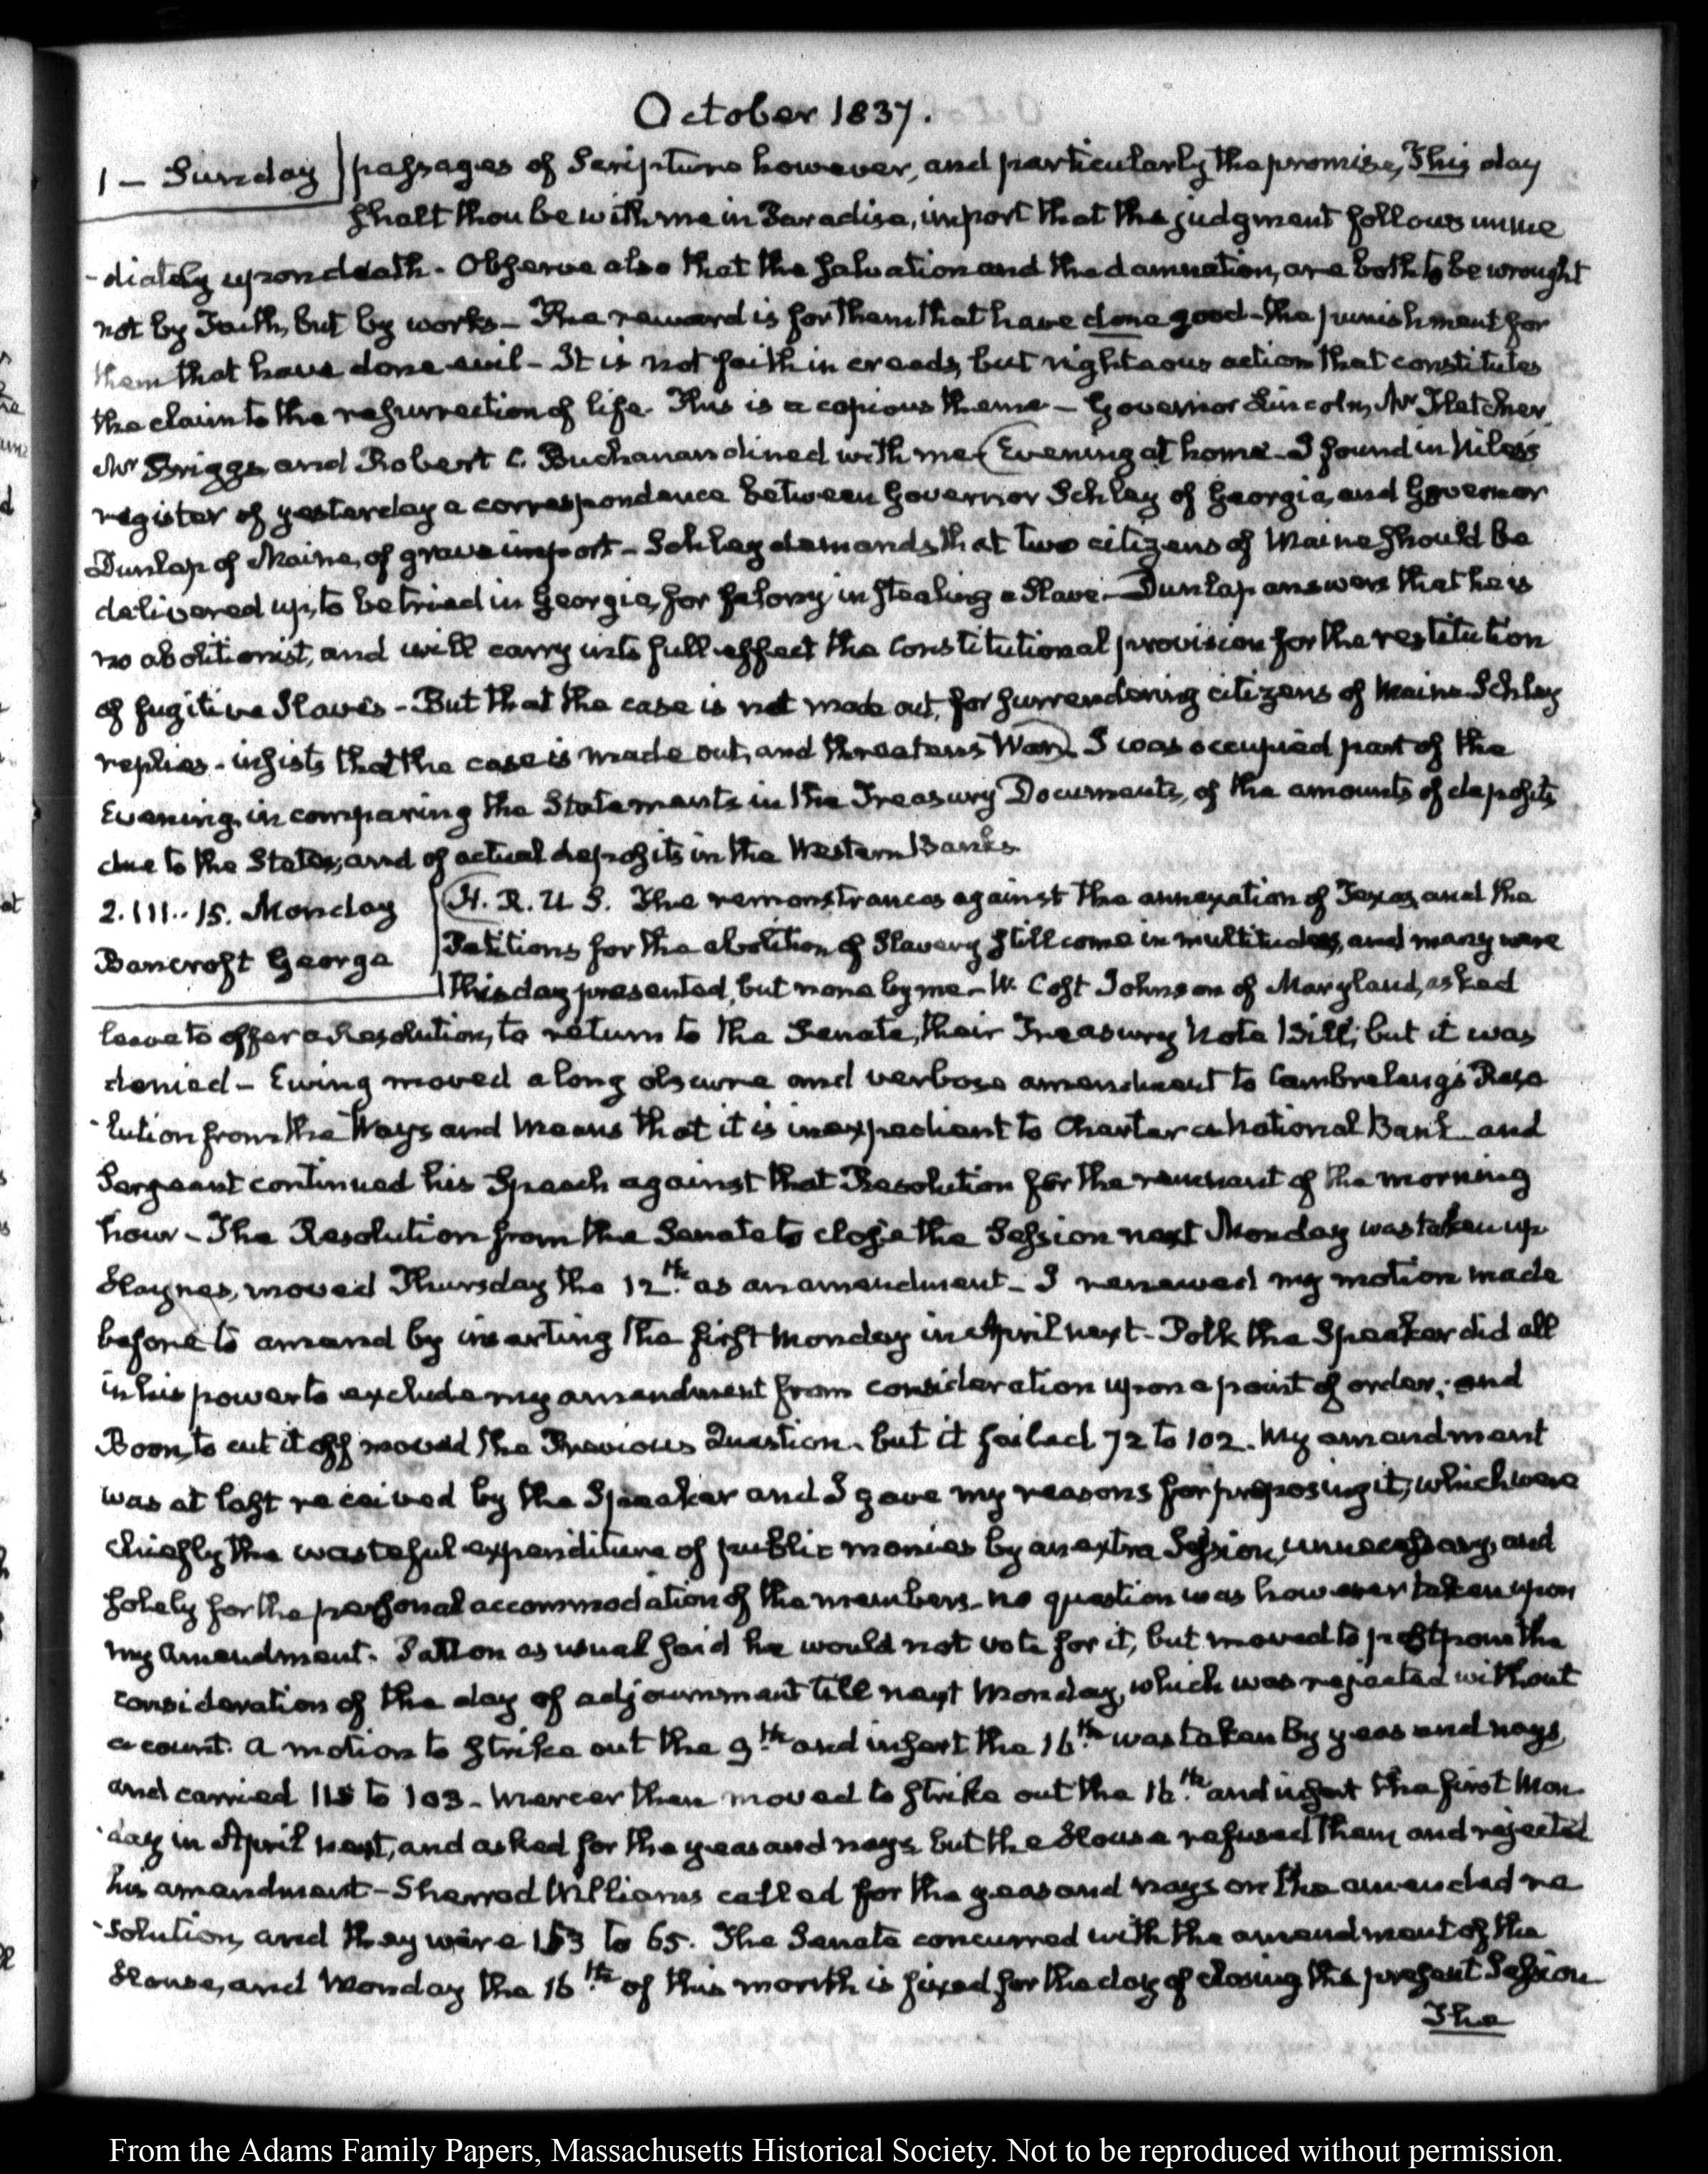 October 1837.
1 – Sunday
passages of Scripture however, and particularly the promise, This day
shalt thou be with me in Paradise, import that the judgment follows imme
-diately upon death. Observe also that the salvation and the damnation, are both to be wrought
not by Faith, but by works – The reward is for them that have done good – the punishment for
them that have done evil – It is not faith in creeds, but righteous action that constitutes
the claim to the resurrection of life. This is a copious theme – Governor Lincoln, Mr Fletcher,
Mr Briggs and Robert C. Buchanan dined with me (Evening at home – I found in Niles's
register of yesterday a correspondence between Governor Schley of Georgia, and Governor
Dunlap of Maine, of grave import – Schley demands that two citizens of Maine should be
delivered up, to be tried in Georgia, for felony in stealing a Slave – Dunlap answers that he is
no abolitionist, and will carry into full effect the Constitutional provision for the restitution
of fugitive Slaves – But that the case is not made out, for surrendering citizens of Maine. Schley
replies – insists that the case is made out, and threatens War). I was occupied part of the
Evening, in comparing the Statements in the Treasury Documents, of the amounts of deposits
due to the States, and of actual deposits in the Western Banks
2. III.. 15. Monday
Bancroft George
H. R. U S. The remonstrances against the annexation of Texas, and the
Petitions for the abolition of Slavery still come in multitudes, and many were
this day presented, but none by me – W. Cost Johnson of Maryland, asked
leave to offer a Resolution, to return to the Senate, their Treasury Note Bill; but it was
denied – Ewing moved a long obscure and verbose amendment to Cambreleng's Reso
-lution from the Ways and Means that it is inexpedient to Charter a National Bank and
Sergeant continued his Speech against that Resolution for the remnant of the morning
hour – The Resolution from the Senate to close the Session next Monday was taken up
Haynes, moved Thursday the 12th. as an amendment – I renewed my motion made
before to amend by inserting the first Monday in April next – Polk the Speaker did all
in his power to exclude my amendment from consideration upon a point of order; and
Boon, to cut it off moved the Previous Question. but it failed 72 to 102. My amendment
was at last received by the Speaker and I gave my reasons for proposing it; which were
chiefly the wasteful expenditure of public monies by an extra Session, unnecessary, and
solely for the personal accommodation of the members – no question was however taken upon
my amendment. Patton as usual said he would not vote for it, but moved to postpone the
consideration of the day of adjournment till next Monday, which was rejected without
a count. A motion to strike out the 9th. and insert the 16th. was taken by yeas and nays,
and carried 115 to 103 – Mercer then moved to strike out the 16th. and insert the first Mon
-day in April next, and asked for the yeas and nays but the House refused them, and rejected
his amendment – Sherrod Williams called for the yeas and nays on the amended re
-solution, and they were 153 to 65. The Senate concurred with the amendment of the
House, and Monday the 16th. of this month is fixed for the day of closing the present Session
The
From the Adams Family Papers, Massachusetts Historical Society. Not to be reproduced without permission.